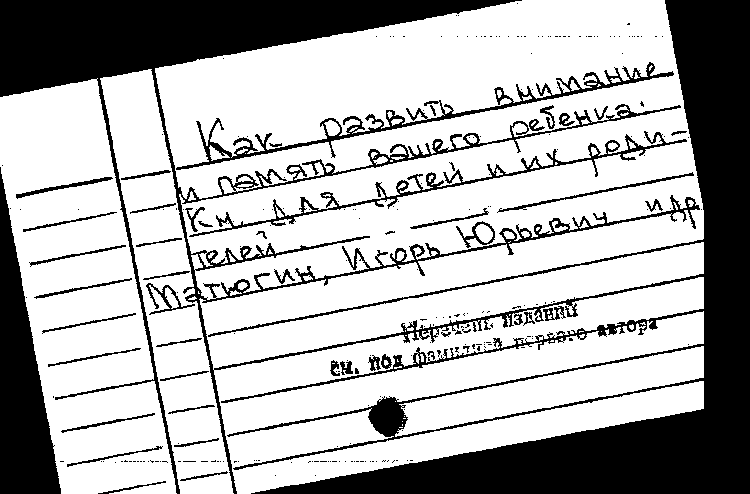 Как развить внимание
и память вашего ребенка.
Кн. для детей и их роди-
телей.
Матюгин, Игорь Юрьевич и др
Перечень изданий
см. под фамилией первого автора